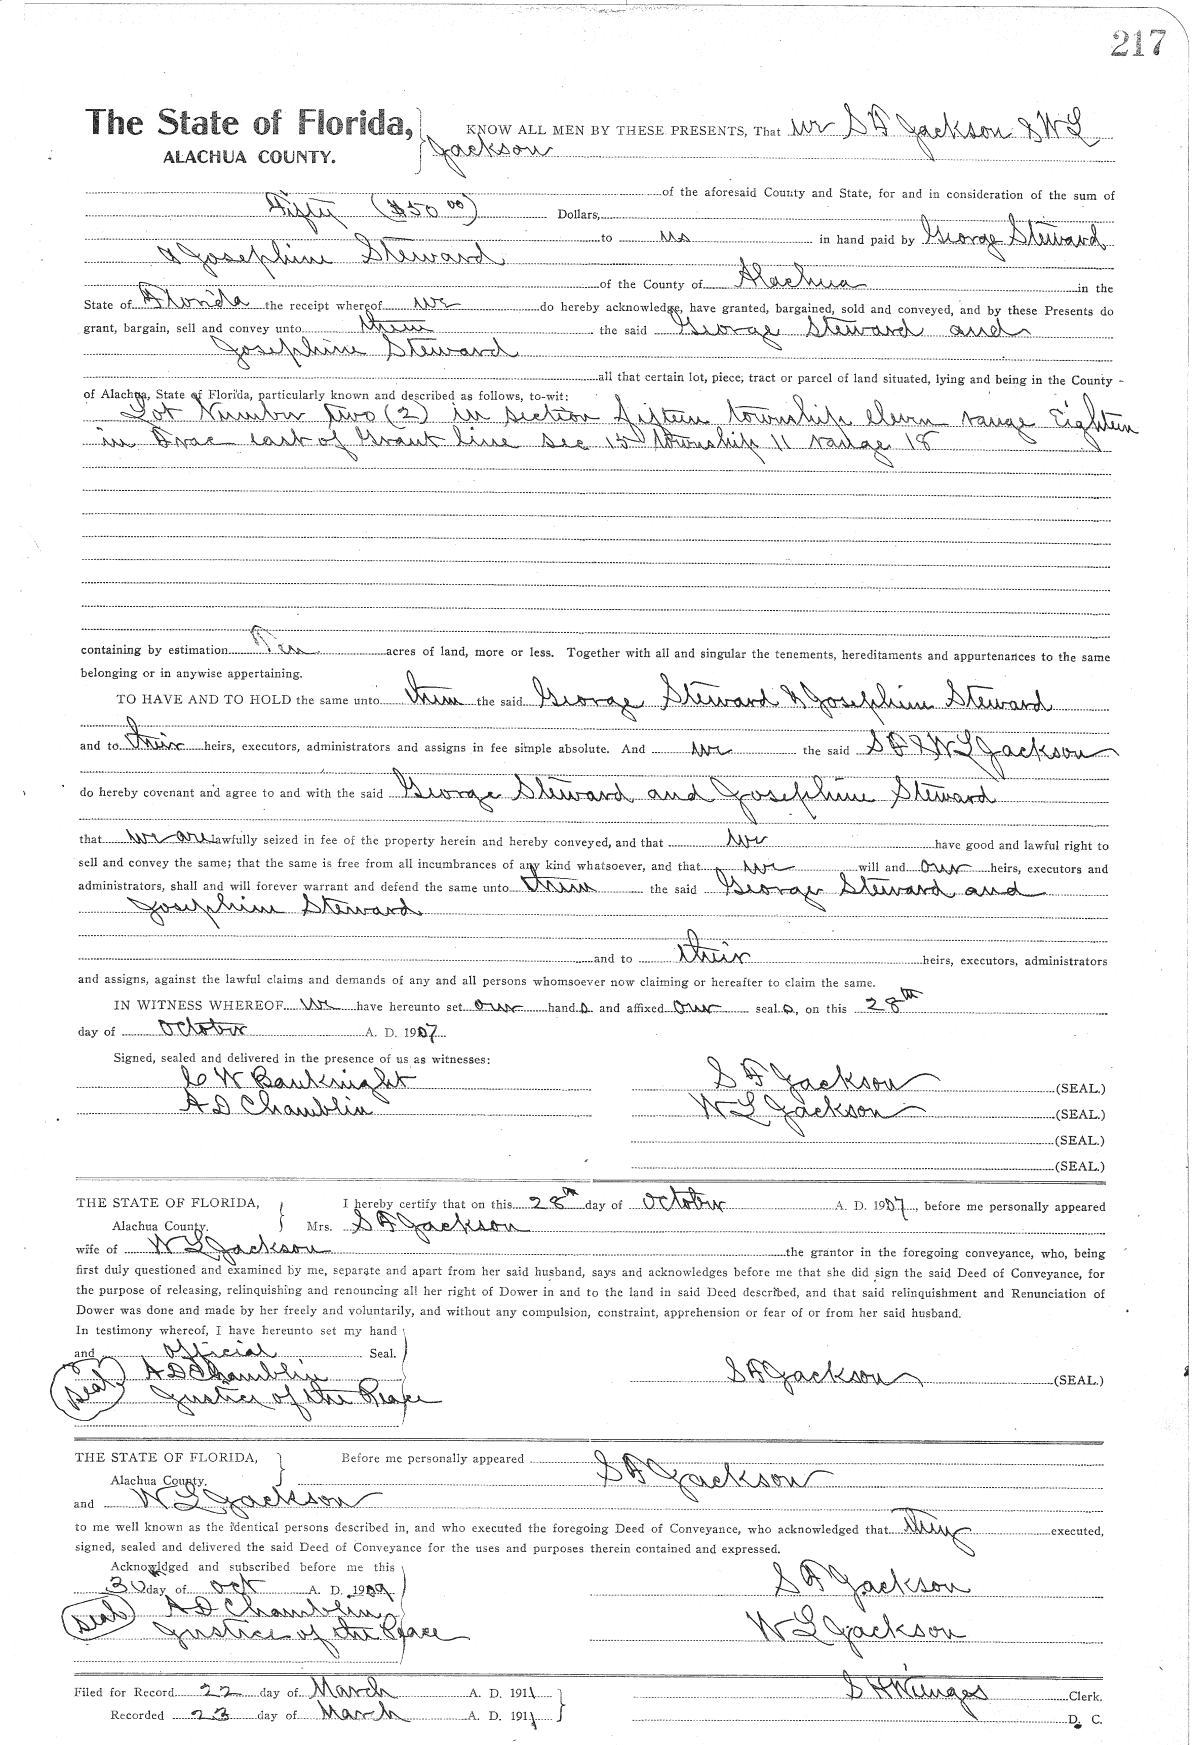 217
The State of Florida, KNOW ALL MEN BY THESE PRESENTS, That we S F Jackson & W L
ALACHUA COUNTY. Jackson
of the aforesaid County and State, for and in consideration of the sum of
Fifty ($50 00) Dollars,
to us in hand paid by George Steward
& Josephine Steward
of the County of Alachua in the
State of Florida the receipt whereof we do hereby acknowledge, have granted, bargained, sold and conveyed, and by these Presents do
grant, bargain, sell and convey unto them the said George Steward and
Josephine Steward
all that certain lot, piece, tract or parcel of land situated, lying and being in the County
of Alachua, State of Florida, particularly known and described as follows, to-wit:
Lot Number two (2) in section fifteen township eleven range Eighteen
in east of Grant line sec 15 township 11 range 18
containing by estimation Ten acres of land, more or less. Together with all and singular the tenements, hereditaments and appurtenances to the same
belonging or in anywise appertaining.
TO HAVE AND TO HOLD the same unto them the said George Steward & Josephine Steward
and to their heirs, executors, administrators and assigns in fee simple absolute. And we the said S F & W L Jackson
do hereby covenant and agree to and with the said George Steward and Josephine Steward
that we are lawfully seized in fee of the property herein and hereby conveyed, and that we have good and lawful right to
sell and convey the same; that the same is free from all incumbrances of any kind whatsoever, and that we will and our heirs, executors and
administrators, shall and will forever warrant and defend the same unto them the said George Steward and
Josephine Steward
and to their heirs, executors, administrators
and assigns, against the lawful claims and demands of any and all persons whomsoever now claiming or hereafter to claim the same.
IN WITNESS WHEREOF We have hereunto set our hands and affixed our seals, on this 28th
day of October A. D. 1907
Signed, sealed and delivered in the presence of us as witnesses:
C W Bauknight S F Jackson (SEAL.)
A D Chamblin W L Jackson (SEAL.)
(SEAL.)
(SEAL.)
THE STATE OF FLORIDA, I hereby certify that on this 28th day of October A. D. 1907, before me personally appeared
Alachua County. Mrs. S F Jackson
wife of W L Jackson the grantor in the foregoing conveyance, who, being
first duly questioned and examined by me, separate and apart from her said husband, says and acknowledges before me that she did sign the said Deed of Conveyance, for
the purpose of releasing, relinquishing and renouncing all her right of Dower in and to the land in said Deed described, and that said relinquishment and Renunciation of
Dower was done and made by her freely and voluntarily, and without any compulsion, constraint, apprehension or fear of or from her said husband.
In testimony whereof, I have hereunto set my hand
and official Seal.
Seal A D Chamblin S F Jackson (SEAL.)
Justice of the Peace
THE STATE OF FLORIDA, Before me personally appeared S F Jackson
Alachua County.
and W L Jackson
to me well known as the identical persons described in, and who executed the foregoing Deed of Conveyance, who acknowledged that they executed,
signed, sealed and delivered the said Deed of Conveyance for the uses and purposes therein contained and expressed.
Acknowldged and subscribed before me this
30 day of Oct A. D. 1909 S F Jackson
Seal A D Chamblin
Justice of the Peace W L Jackson
Filed for Record 22 day of March A. D. 1911 S H Wienges Clerk.
Recorded 23 day of March A. D. 1911 D. C.